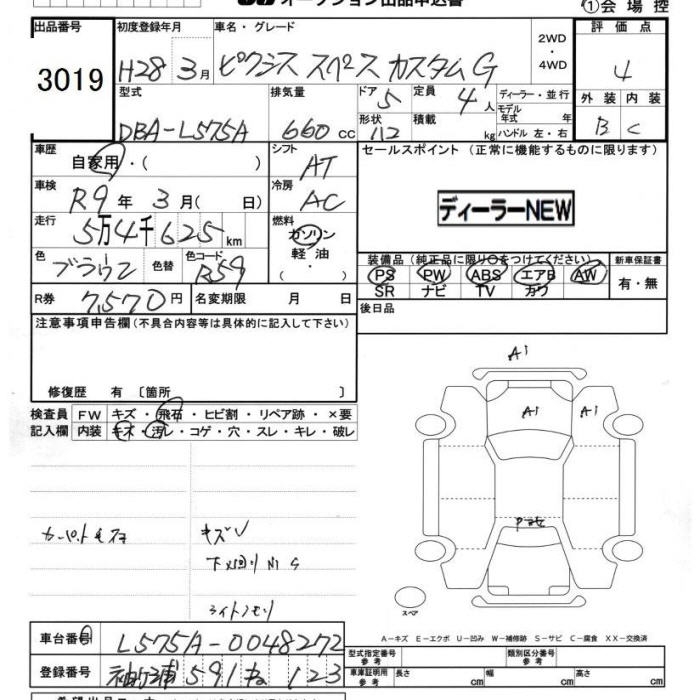 オークション出品申込書
①会場控
出品番号
3019
初度登録年月
H28年3月
車名・グレード
ピクシス スペース カスタムG
2WD・4WD
評価点
4
型式
DBA-L575A
排気量
660cc
ドア
5
形状
定員
4人
積載
kg
ディーラー・並行
モデル年式 年
ハンドル 左・右
外装
B
内装
C
車歴
自家用・( )
シフト
AT
セールスポイント (正常に機能するものに限ります)
ディーラーNEW
車検
R9年3月( 日)
冷房
AC
走行
5万4千625km
燃料
ガソリン
軽油
色
ブラウン
色替
色コード
R59
装備品(純正品に限り○をつけてください)
PS PW ABS エアB AW
SR ナビ TV カワ
新車保証書
有・無
R券
7,570円
名変期限 月 日
後日品
注意事項申告欄(不具合内容等は具体的に記入して下さい)
修復歴 有 [箇所 ]
検査員記入欄
FW キズ・飛石・ヒビ割・リペア跡・×要
内装 キズ・汚レ・コゲ・穴・スレ・キレ・破レ
キズV
A1
A1
A1
スペア
A-キズ E-エクボ U-凹み W-補修跡 S-サビ C-腐食 XX-交換済
車台番号
L575A-0048272
型式指定番号 参考
類別区分番号 参考
登録番号
袖ケ浦 591 123
車庫証明用 参考
長さ cm
幅 cm
高さ cm